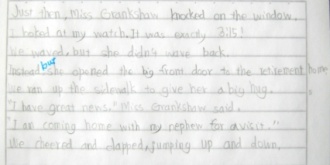 Just then, Miss Crankshaw knocked on the window.
I looked at my watch. It was exactly 3:15!
We waved, but she didn't wave back.
Instead she opened the big front door to the retirement home
but
We ran up the sidewalk to give her a big hug.
"I have great news." Miss Crankshaw said.
"I am coming home with my nephew for a visit."
We cheered and clapped, jumping up and down.